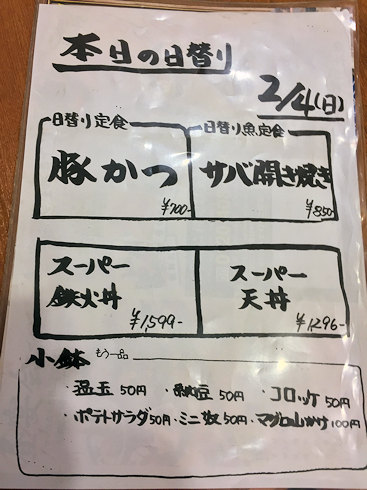 本日の日替り
2/4(日)
日替り定食
豚かつ
¥700-
日替り魚定食
サバ開き焼き
¥850-
スーパー
鉄火丼
¥1,599-
スーパー
天丼
¥1,296-
小鉢 もう一品
・温玉 50円 ・納豆 50円 ・コロッケ 50円
・ポテトサラダ 50円 ・ミニ奴 50円 ・マグロ山かけ 100円